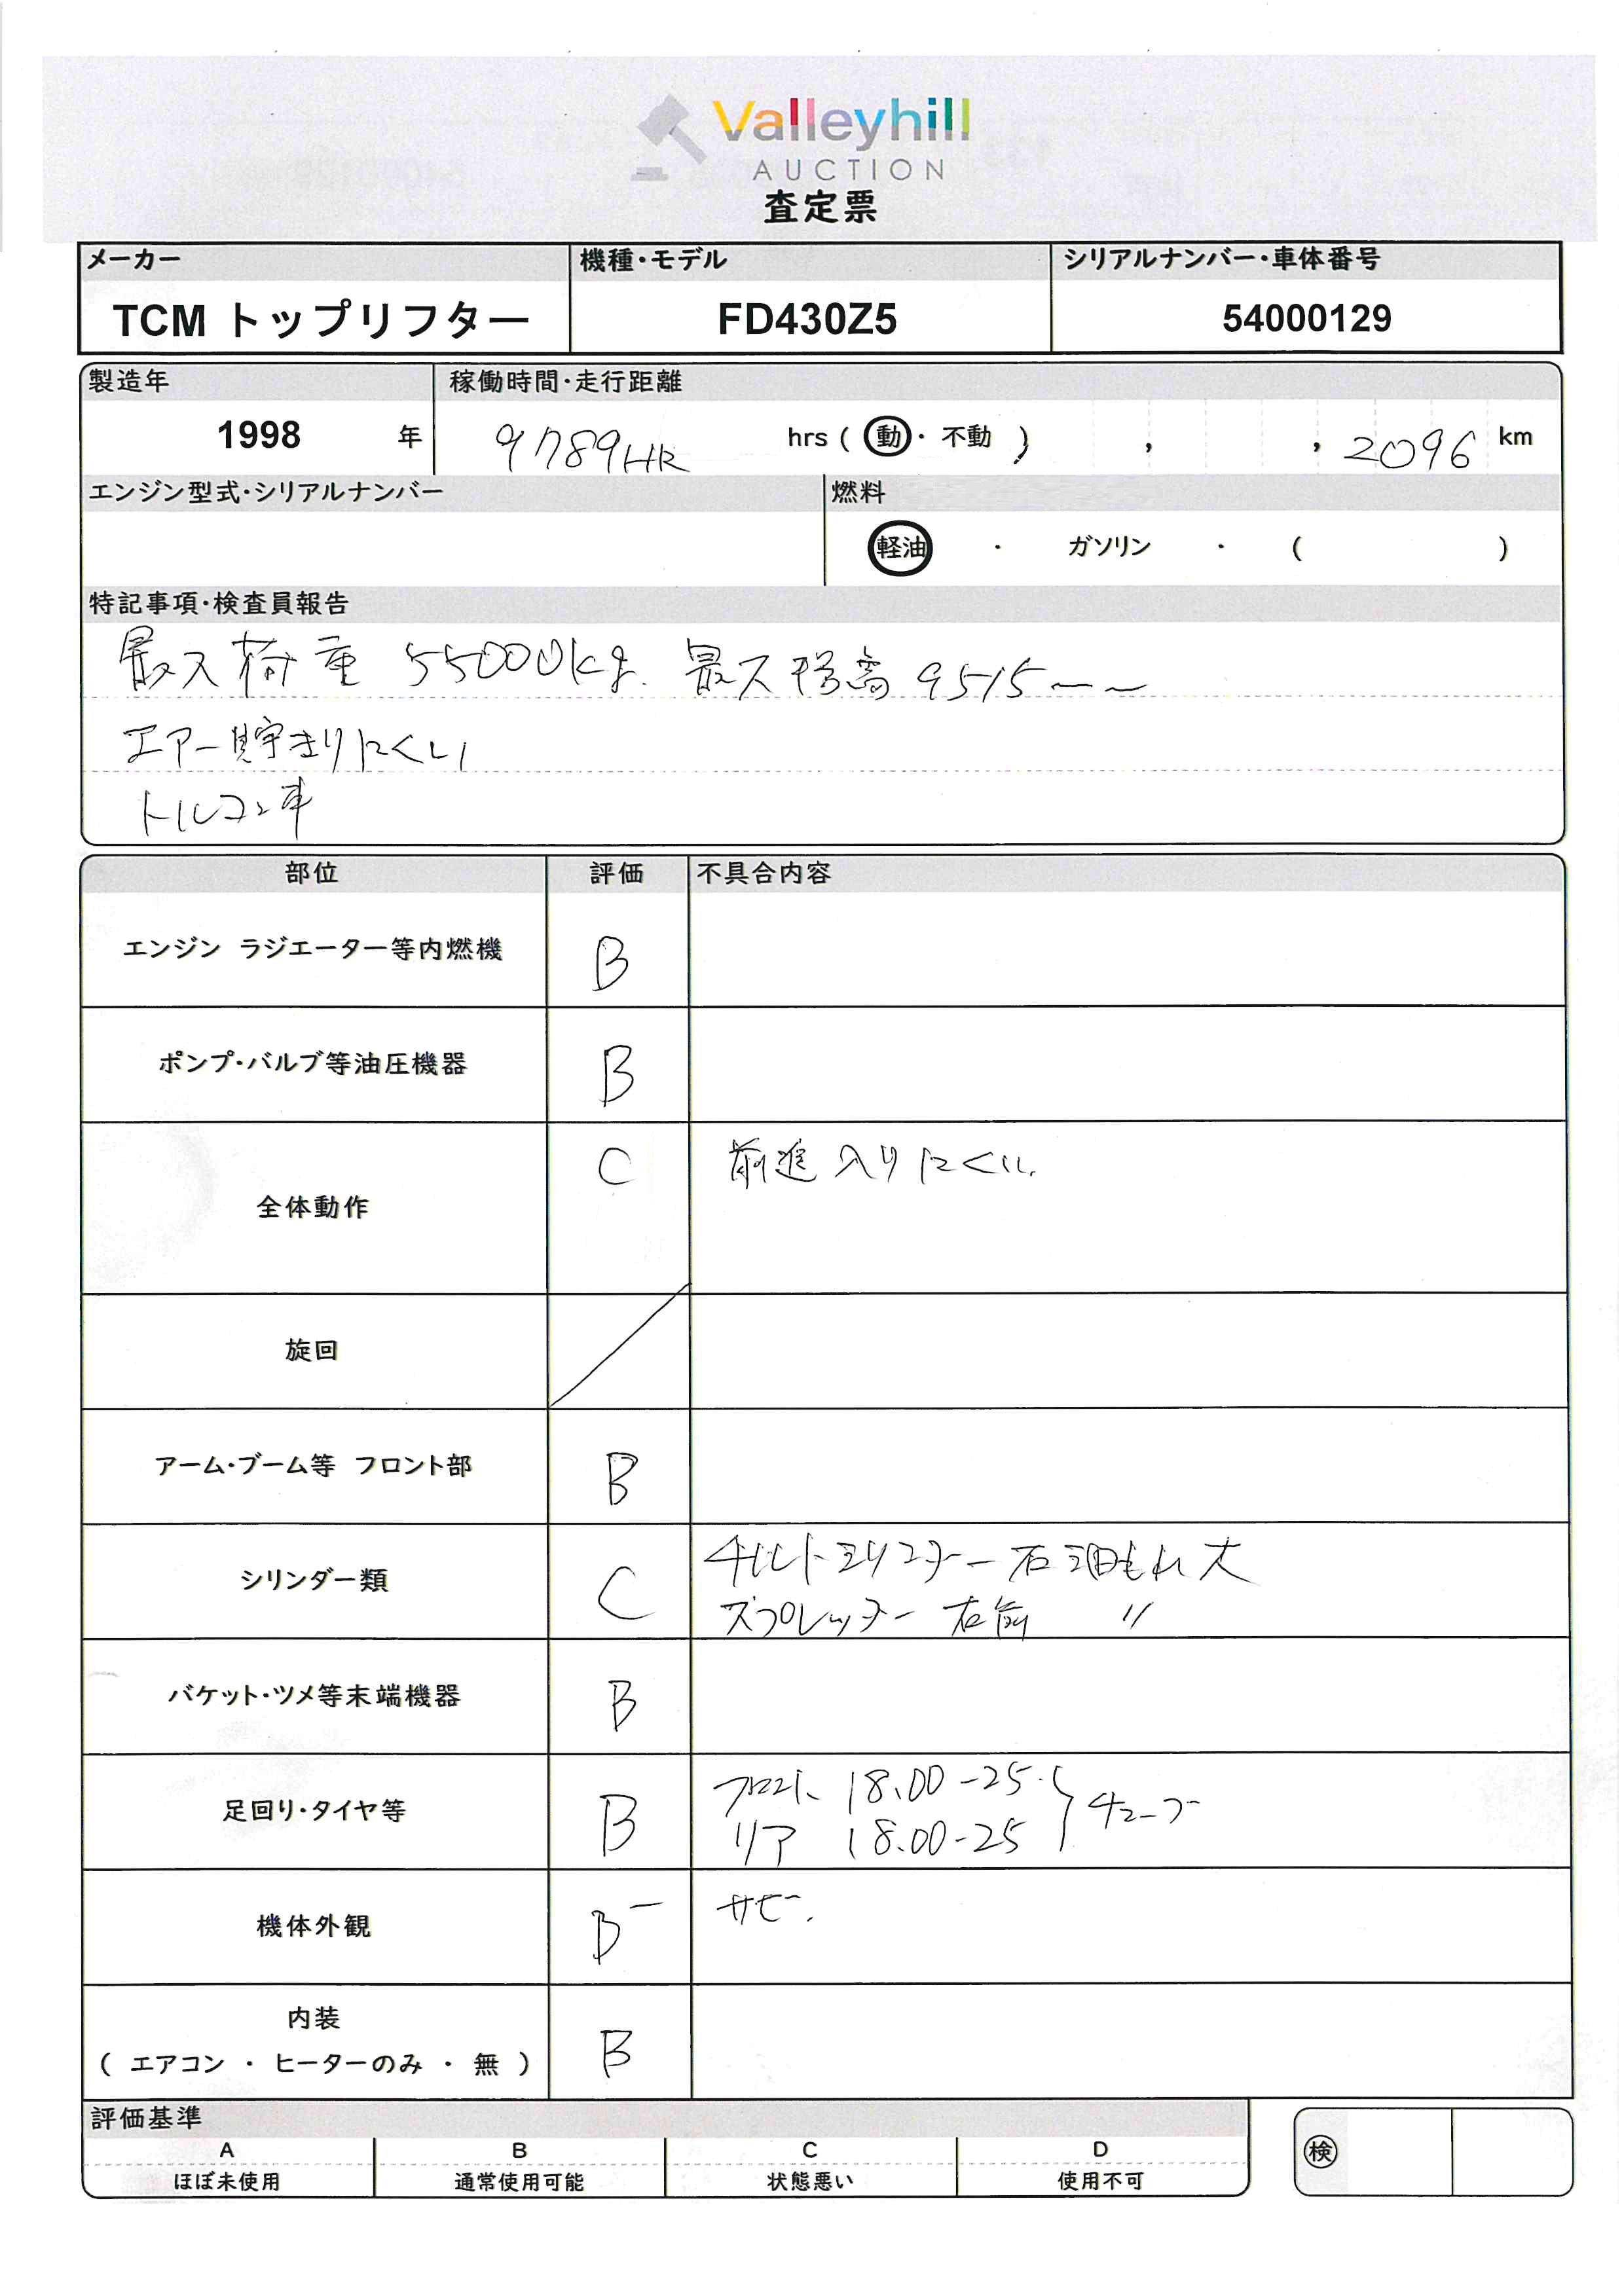 Valleyhill
AUCTION
査定票
メーカー 機種・モデル シリアルナンバー・車体番号
TCM トップリフター FD430Z5 54000129
製造年 稼働時間・走行距離
1998 年 9789HR hrs ( 動 ・ 不動 ) , , 2096 km
エンジン型式・シリアルナンバー 燃料
軽油 ・ ガソリン ・ ( )
特記事項・検査員報告
最大荷重 55000kg. 最大揚高 9515〜〜
エアー貯まりにくい
トルコン車
部位 評価 不具合内容
エンジン ラジエーター等内燃機 B
ポンプ・バルブ等油圧機器 B
全体動作 C 前進入りにくい.
旋回
アーム・ブーム等 フロント部 B
シリンダー類 C チルトシリンダー右油もれ大
スプレッダー 右前 〃
バケット・ツメ等末端機器 B
足回り・タイヤ等 B フロント 18.00-25 チューブ
リア 18.00-25
機体外観 B- サビ.
内装
( エアコン ・ ヒーターのみ ・ 無 ) B
評価基準
A B C D
ほぼ未使用 通常使用可能 状態悪い 使用不可
検